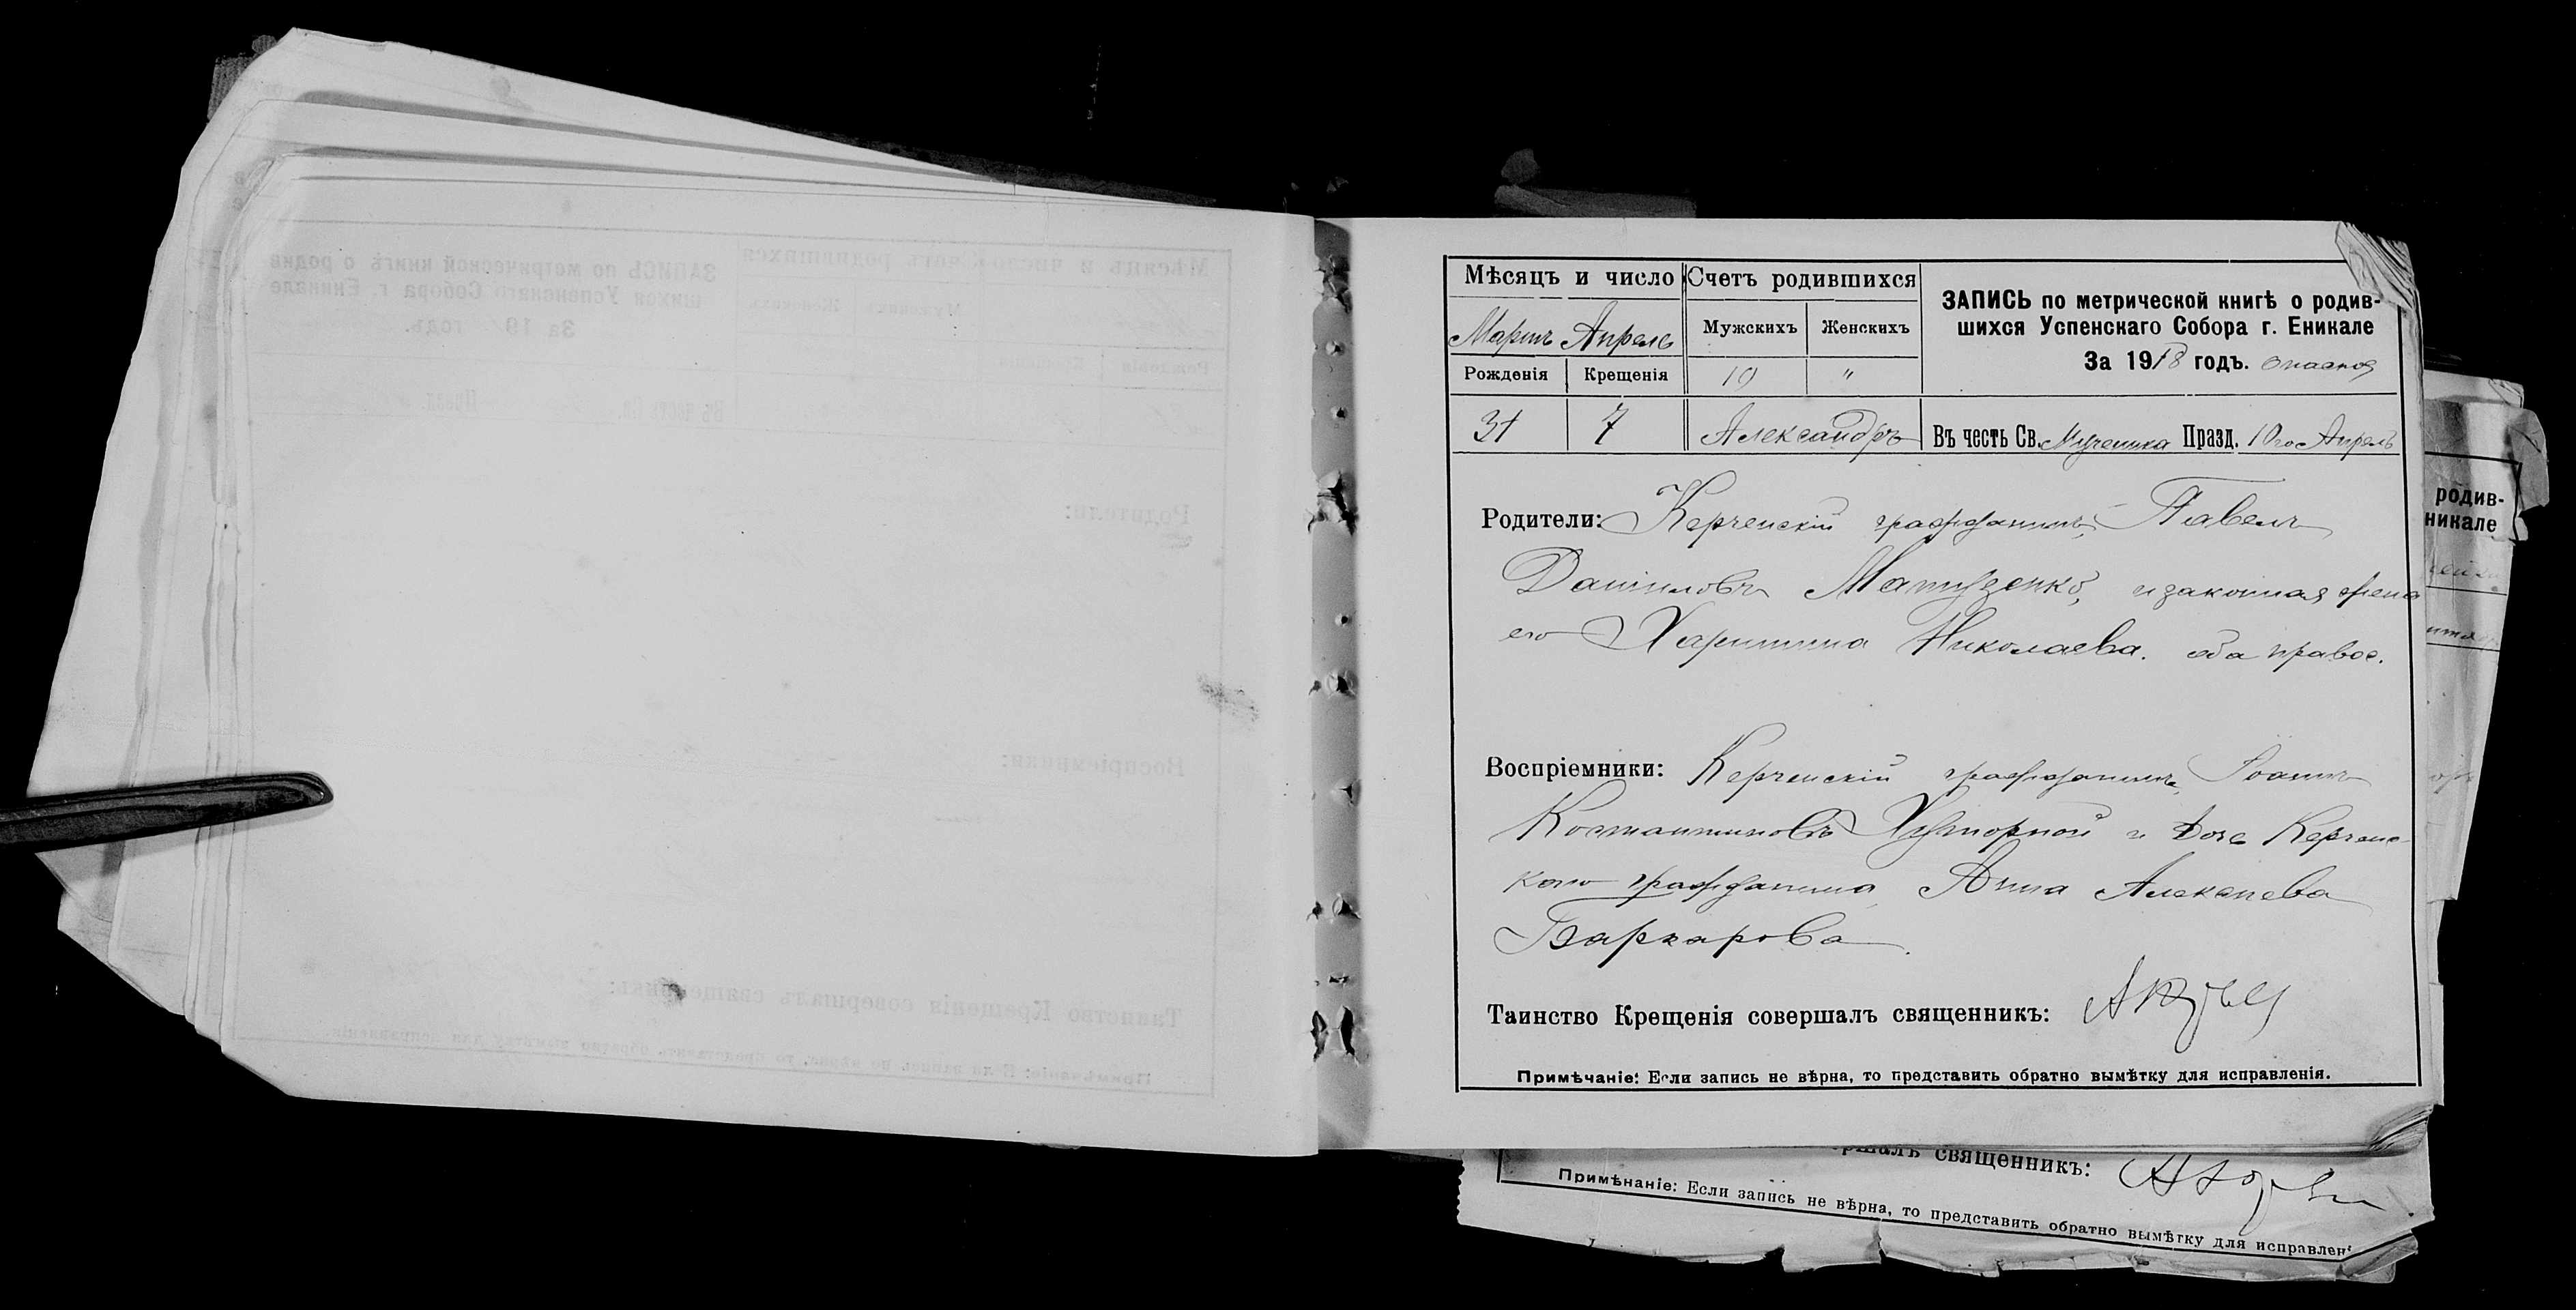 Мѣсяцъ и число
Счетъ родившихся
ЗАПИСЬ по метрической книгѣ о родив-
шихся Успенскаго Собора г. Еникале
За 1918 годъ.
Мартъ Апрель
Мужскихъ Женскихъ
Рожденія Крещенія
10 "
31 7 Александръ
Въ честь Св. Мученика Празд. 10го Апрель
Родители: Керченскій гражданинъ, Павелъ
Даниловъ Матузенко, и законная жена
его Харитина Николаева. оба правос.
Воспріемники: Керченскій гражданинъ, Іоаннъ
Костантиновъ Хуторной и Дочь Керченс-
каго гражданина, Анна Алексеева
Таинство Крещенія совершалъ священникъ:
Примѣчаніе: Если запись не вѣрна, то представить обратно вымѣтку для исправленія.
родив-
никале
священникъ:
Примѣчаніе: Если запись не вѣрна, то представить обратно вымѣтку для исправлен